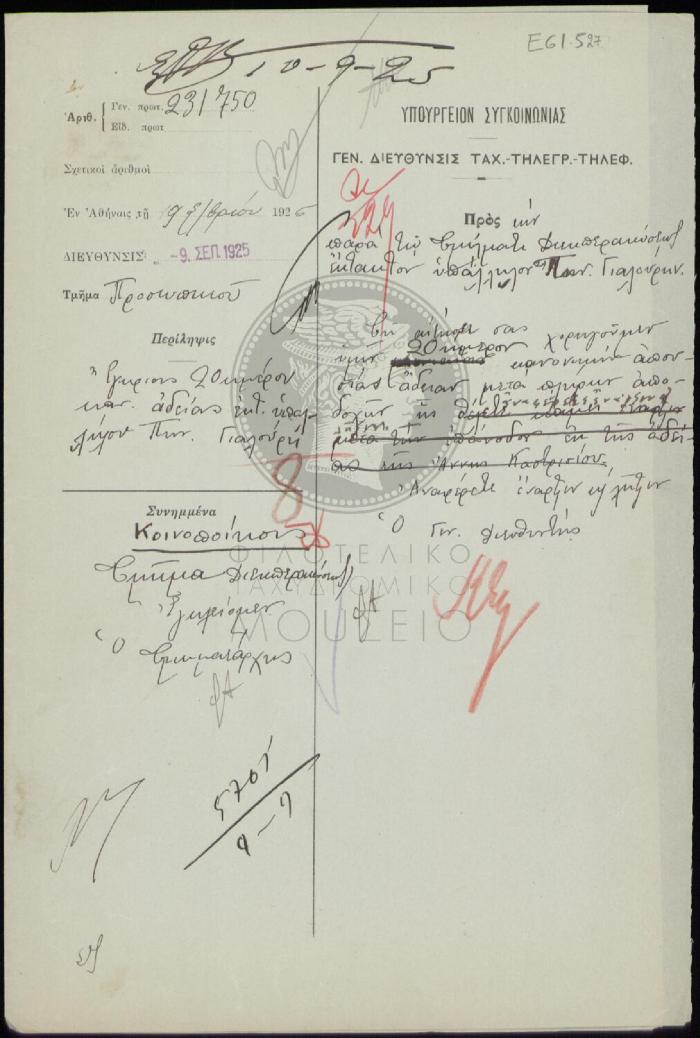 E61.527
10-9-25
Ἀριθ. Γεν. πρωτ. 231750
Εἰδ. πρωτ.
Σχετικοὶ ἀριθμοὶ
Ἐν Ἀθήναις τῇ 9 7/βρίου 1925
ΔΙΕΥΘΥΝΣΙΣ: -9. ΣΕΠ. 1925
Τμῆμα Προσωπικοῦ
Περίληψις
Ἔγκρισις 20ημέρου
καν. ἀδείας ἐκτ. ὑπαλ-
λήλου Παν. Γιαλούρη
Συνημμένα
Κοινοποίησις
Τμῆμα Διεκπεραιώσεως
Ὁ Τμηματάρχης
5701
9-9
ΥΠΟΥΡΓΕΙΟΝ ΣΥΓΚΟΙΝΩΝΙΑΣ
ΓΕΝ. ΔΙΕΥΘΥΝΣΙΣ ΤΑΧ.-ΤΗΛΕΓΡ.-ΤΗΛΕΦ.
527
Πρὸς τὴν
παρὰ τῷ Τμήματι Διεκπεραιώσεως
ἔκτακτον ὑπάλληλον Παν. Γιαλούρην.
Τῇ αἰτήσει σας χορηγοῦμεν
ὑμῖν 20ήμερον κανονικὴν ἀπου-
σίας ἄδειαν μετὰ πλήρων ἀπο-
δοχῶν τῆς
μετὰ τὴν ἐπάνοδον ἐκ τῆς ἀδεί-
ας τῆς Ἄννης Καστρισίου
Ἀναφέρετε ἔναρξιν καὶ λῆξιν
Ὁ Γεν. Διευθυντής
ΦΙΛΟΤΕΛΙΚΟ
ΤΑΧΥΔΡΟΜΙΚΟ
ΜΟΥΣΕΙΟ